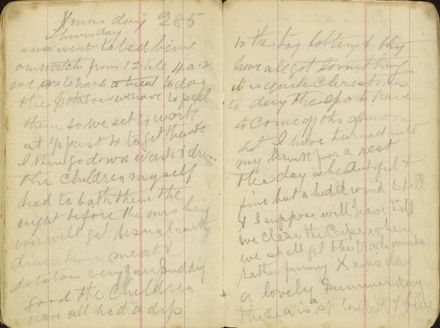 Xmas day 285
Thursday
never went to bed being
our watch from 12 till 4 a.m.
and are to have a treat today
the potatoes we have to peel
them so we set to work
at ½ past 4 to get them
I then go down wash & dress
the children myself
had to bath them the
night before the nurse being
unwell get usual
drive time meat &
potatoes very fair pudding
good the children
have all had a dip
in the bag lottery & they
have all got something
it is quite Christmas
to day the sports have
to come off this afternoon
but I have turned into
my bunk for a rest
the day is beautiful &
fine but a head wind still
& I suppose will have till
we clear the Cape when
we shall get the trade winds
rather funny Xmas day
a lovely Summer day
the sea is splendid & blue